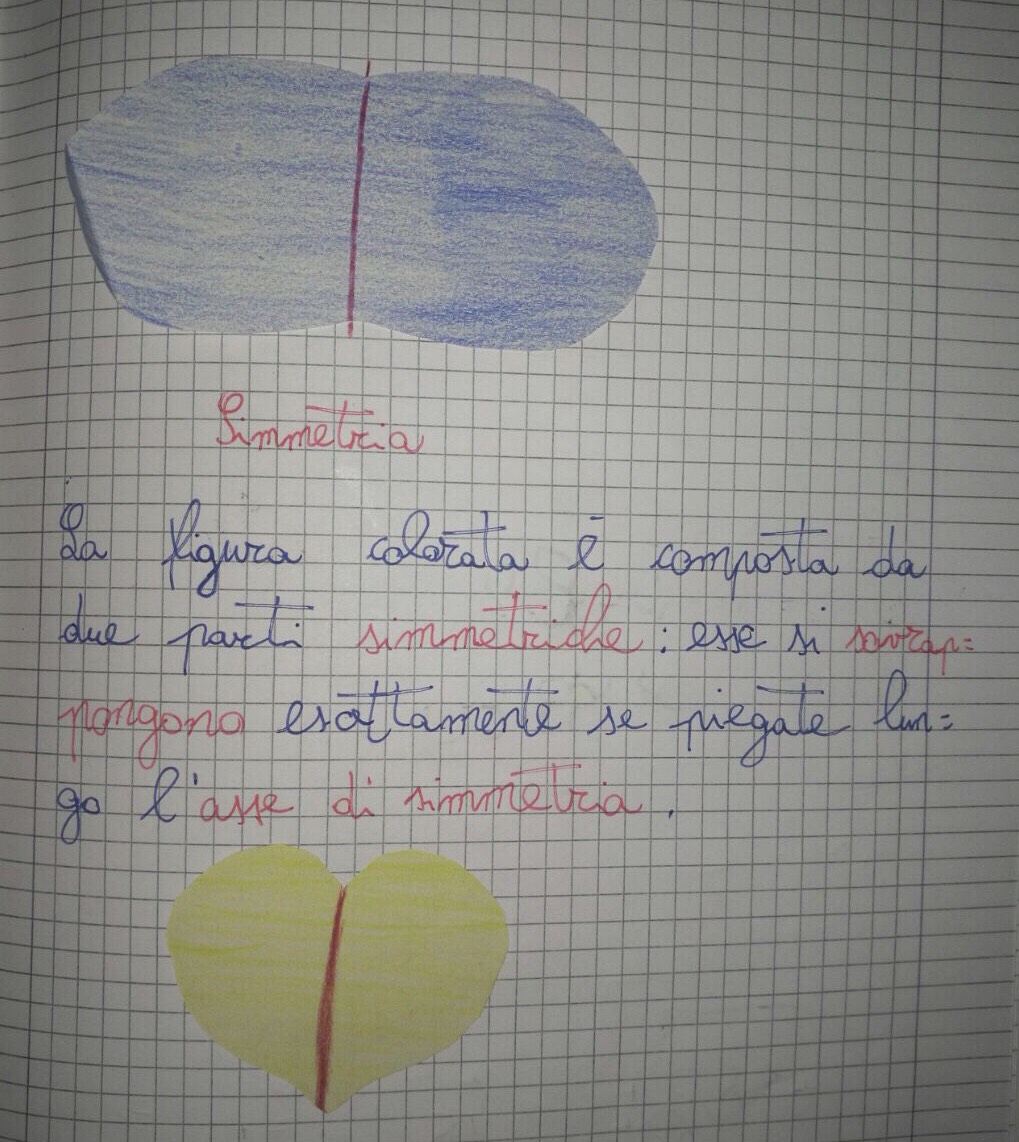 Simmetria
La figura colorata è composta da
due parti simmetriche: esse si sovrap=
pongono esattamente se piegate lun=
go l'asse di simmetria.